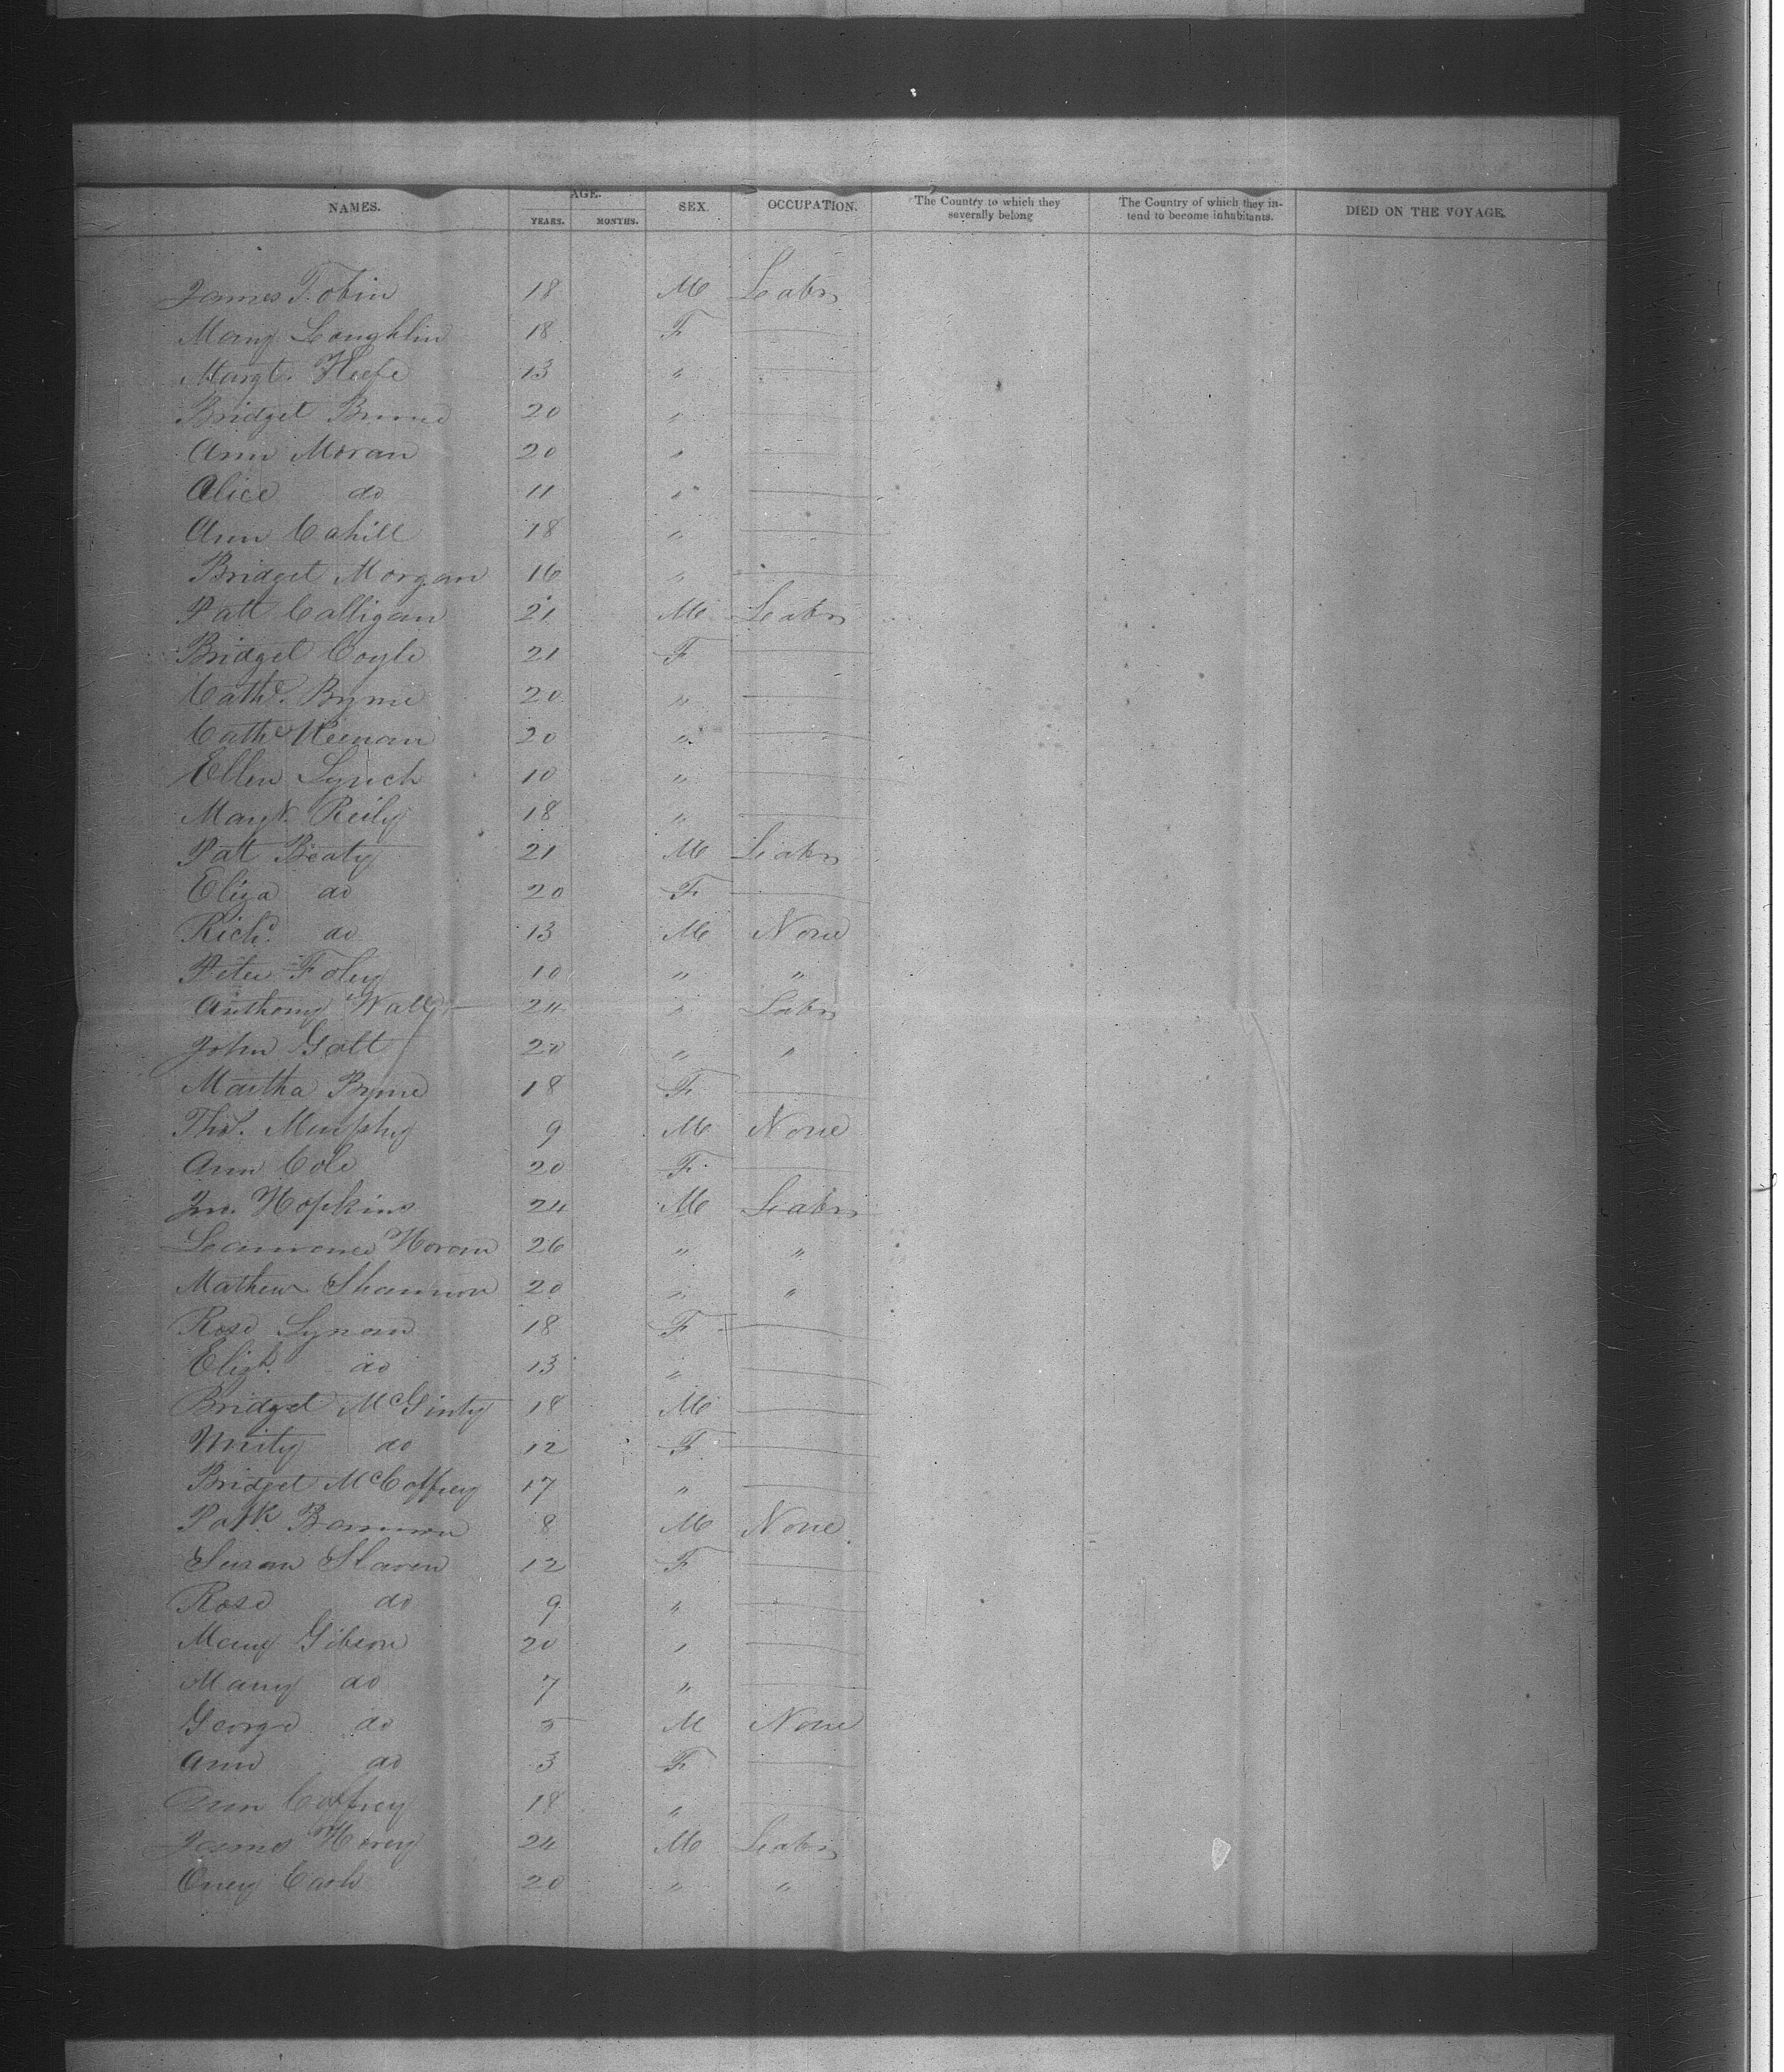 NAMES. AGE. YEARS. MONTHS. SEX. OCCUPATION. The Country to which they severally belong The Country of which they intend to become inhabitants. DIED ON THE VOYAGE.
James Tobin 18 M Labr
Mary Loughlin 18 F —
Margt. Keefe 13 " —
Bridget 20 " —
Ann Moran 20 " —
Alice do 11 " —
Ann Cahill 18 " —
Bridget Morgan 16 " —
Patt Calligan 21 M Labr
Bridget Coyle 21 F —
Cathe. Byrne 20 " —
Cathe Keenan 20 " —
Ellen Lynch 10 " —
Margt. Reily 18 " —
Pat Beaty 21 M Labr
Eliza do 20 F —
Richd. do 13 M None
Peter Foley 10 " "
Anthony Wall 24 " Labr
John Galt 20 " "
Martha Byrne 18 F —
Thos. Murphy 9 M None
Ann Cole 20 F —
Jno. Hopkins 24 M Labr
Horan 26 " "
Mathew Shannon 20 " "
Rose Lynam 18 F —
Elizh. do 13 " —
Bridget McGinty 18 M —
Unity do 12 F —
Bridget McCaffrey 17 " —
Patk Bannon 8 M None
Susan Slaven 12 F —
Rose do 9 " —
Mary Gibson 20 " —
Mary do 7 " —
George do 5 M None
Ann do 3 F —
Ann Caffrey 18 " —
James 24 M Labr
Carli 20 " "